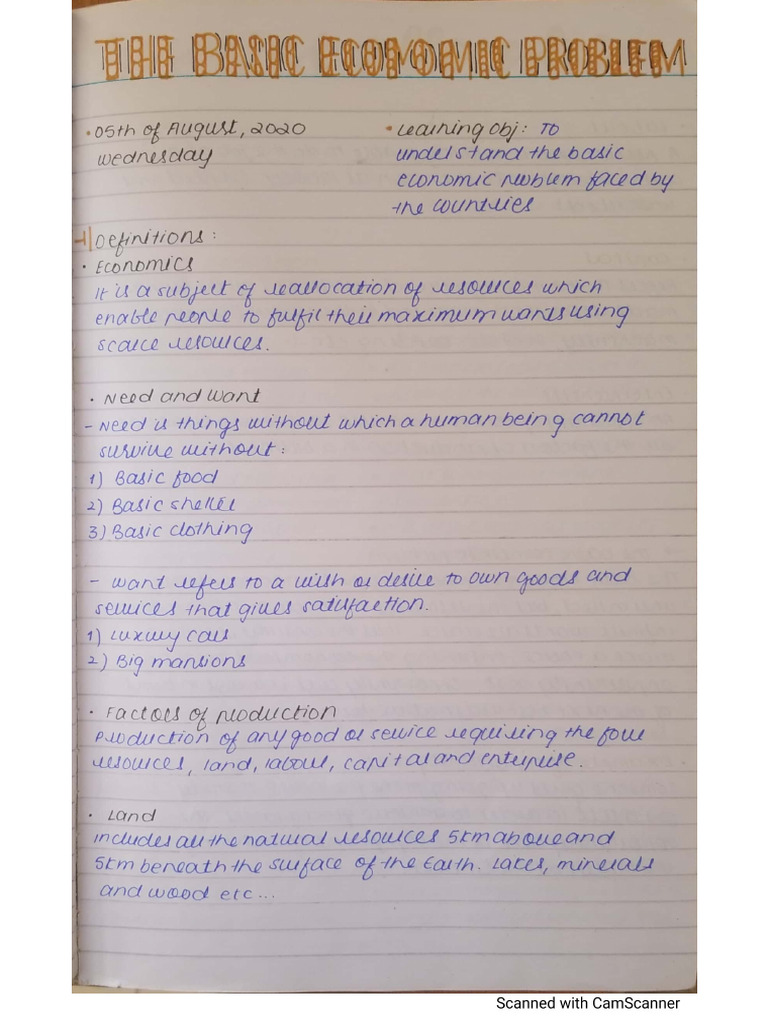 THE BASIC ECONOMIC PROBLEM
• 05th of August, 2020
Wednesday
• Learning Obj: To
understand the basic
economic problem faced by
the countries
1| Definitions:
• Economics
It is a subject of reallocation of resources which
enable people to fulfil their maximum wants using
scarce resources.
• Need and want
- Need is things without which a human being cannot
survive without:
1) Basic food
2) Basic shelter
3) Basic clothing
- Want refers to a wish or desire to own goods and
services that gives satisfaction.
1) Luxury cars
2) Big mansions
• Factors of production
Production of any good or service requiring the four
resources, land, labour, capital and enterprise.
• Land
includes all the natural resources 5km above and
5km beneath the surface of the Earth. Lakes, minerals
and wood etc...
Scanned with CamScanner